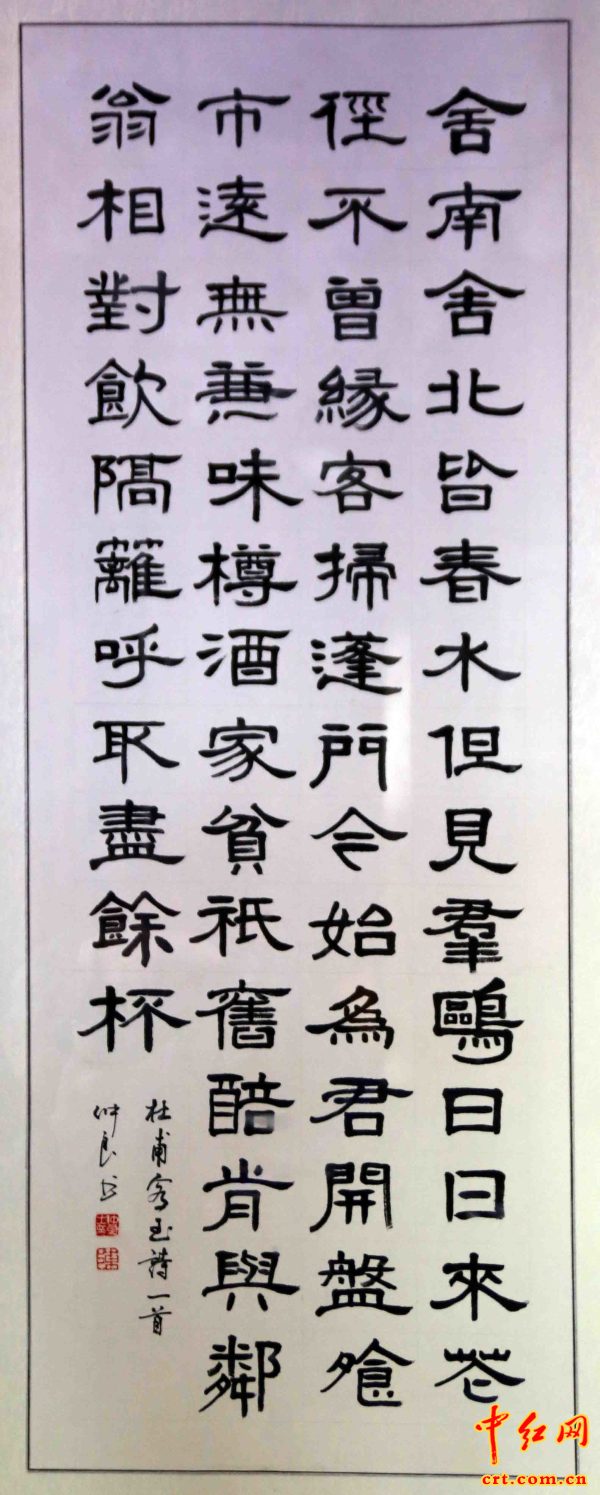 舍南舍北皆春水但見羣鷗日日來花
徑不曾緣客掃蓬門今始為君開盤飧
市遠無兼味樽酒家貧祇舊醅肯與鄰
翁相對飲隔籬呼取盡餘杯
杜甫客至詩一首
仲良书
中红网
crt.com.cn